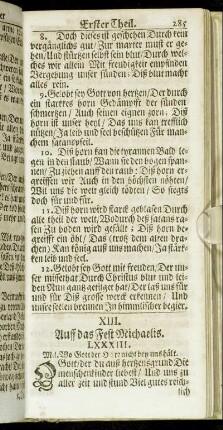 Erster Theil. 285
8. Doch dieses ist geschehen Durch dein
vergängliches gut/ Zur marter must er ge-
hen/ Und stürtzen selbst sein blut. Durch welches
wir allein Mit freudigkeit empfinden
Vergebung unser sünden: Diß blut macht
alles rein.
9. Gelobt sey Gott von hertzen/ Der durch
ein starckes horn Gedämpfft der sünden
schmertzen/ Auch seinen eignen zorn. Diß
horn ist unser heyl/ Das uns kan trefflich
nützen/ Ja leib und seel beschützen Für man-
chem satanspfeil.
10. Diß horn kan die tyrannen Bald le-
gen in den staub/ Wann sie den bogen span-
nen/ Zu ziehen auff den raub: Diß horn er-
greiffen wir Auch in den höchsten nöhten/
Wil uns die welt gleich tödten/ So siegts
doch für und für.
11. Diß horn wird starck geblasen Durch
alle theil der welt/ Wodurch deß satans ra-
sen Zu boden wird gefällt; Diß horn be-
greifft ein öhl/ Das (trotz dem alten dra-
chen) Kan könig auß uns machen/ Ja stärk-
ken leib und seel.
12. Gelobet sey Gott mit freuden/ Der un-
ser missethat Durch Christus blut und lei-
den Nun gantz getilget hat/ Der laß uns für
und für Diß grosse werck erkennen/ Und
unsre seelen brennen In himmlischer begier.
XIII.
Auff das Fest Michaelis.
LXXXIII.
M. l. Wo Gott der Herr nicht bey uns hält.
O Gott/ der du auß hertzensgrund Die
menschenkinder liebest/ Und uns zu
aller zeit und stund Viel gutes reich-
lich